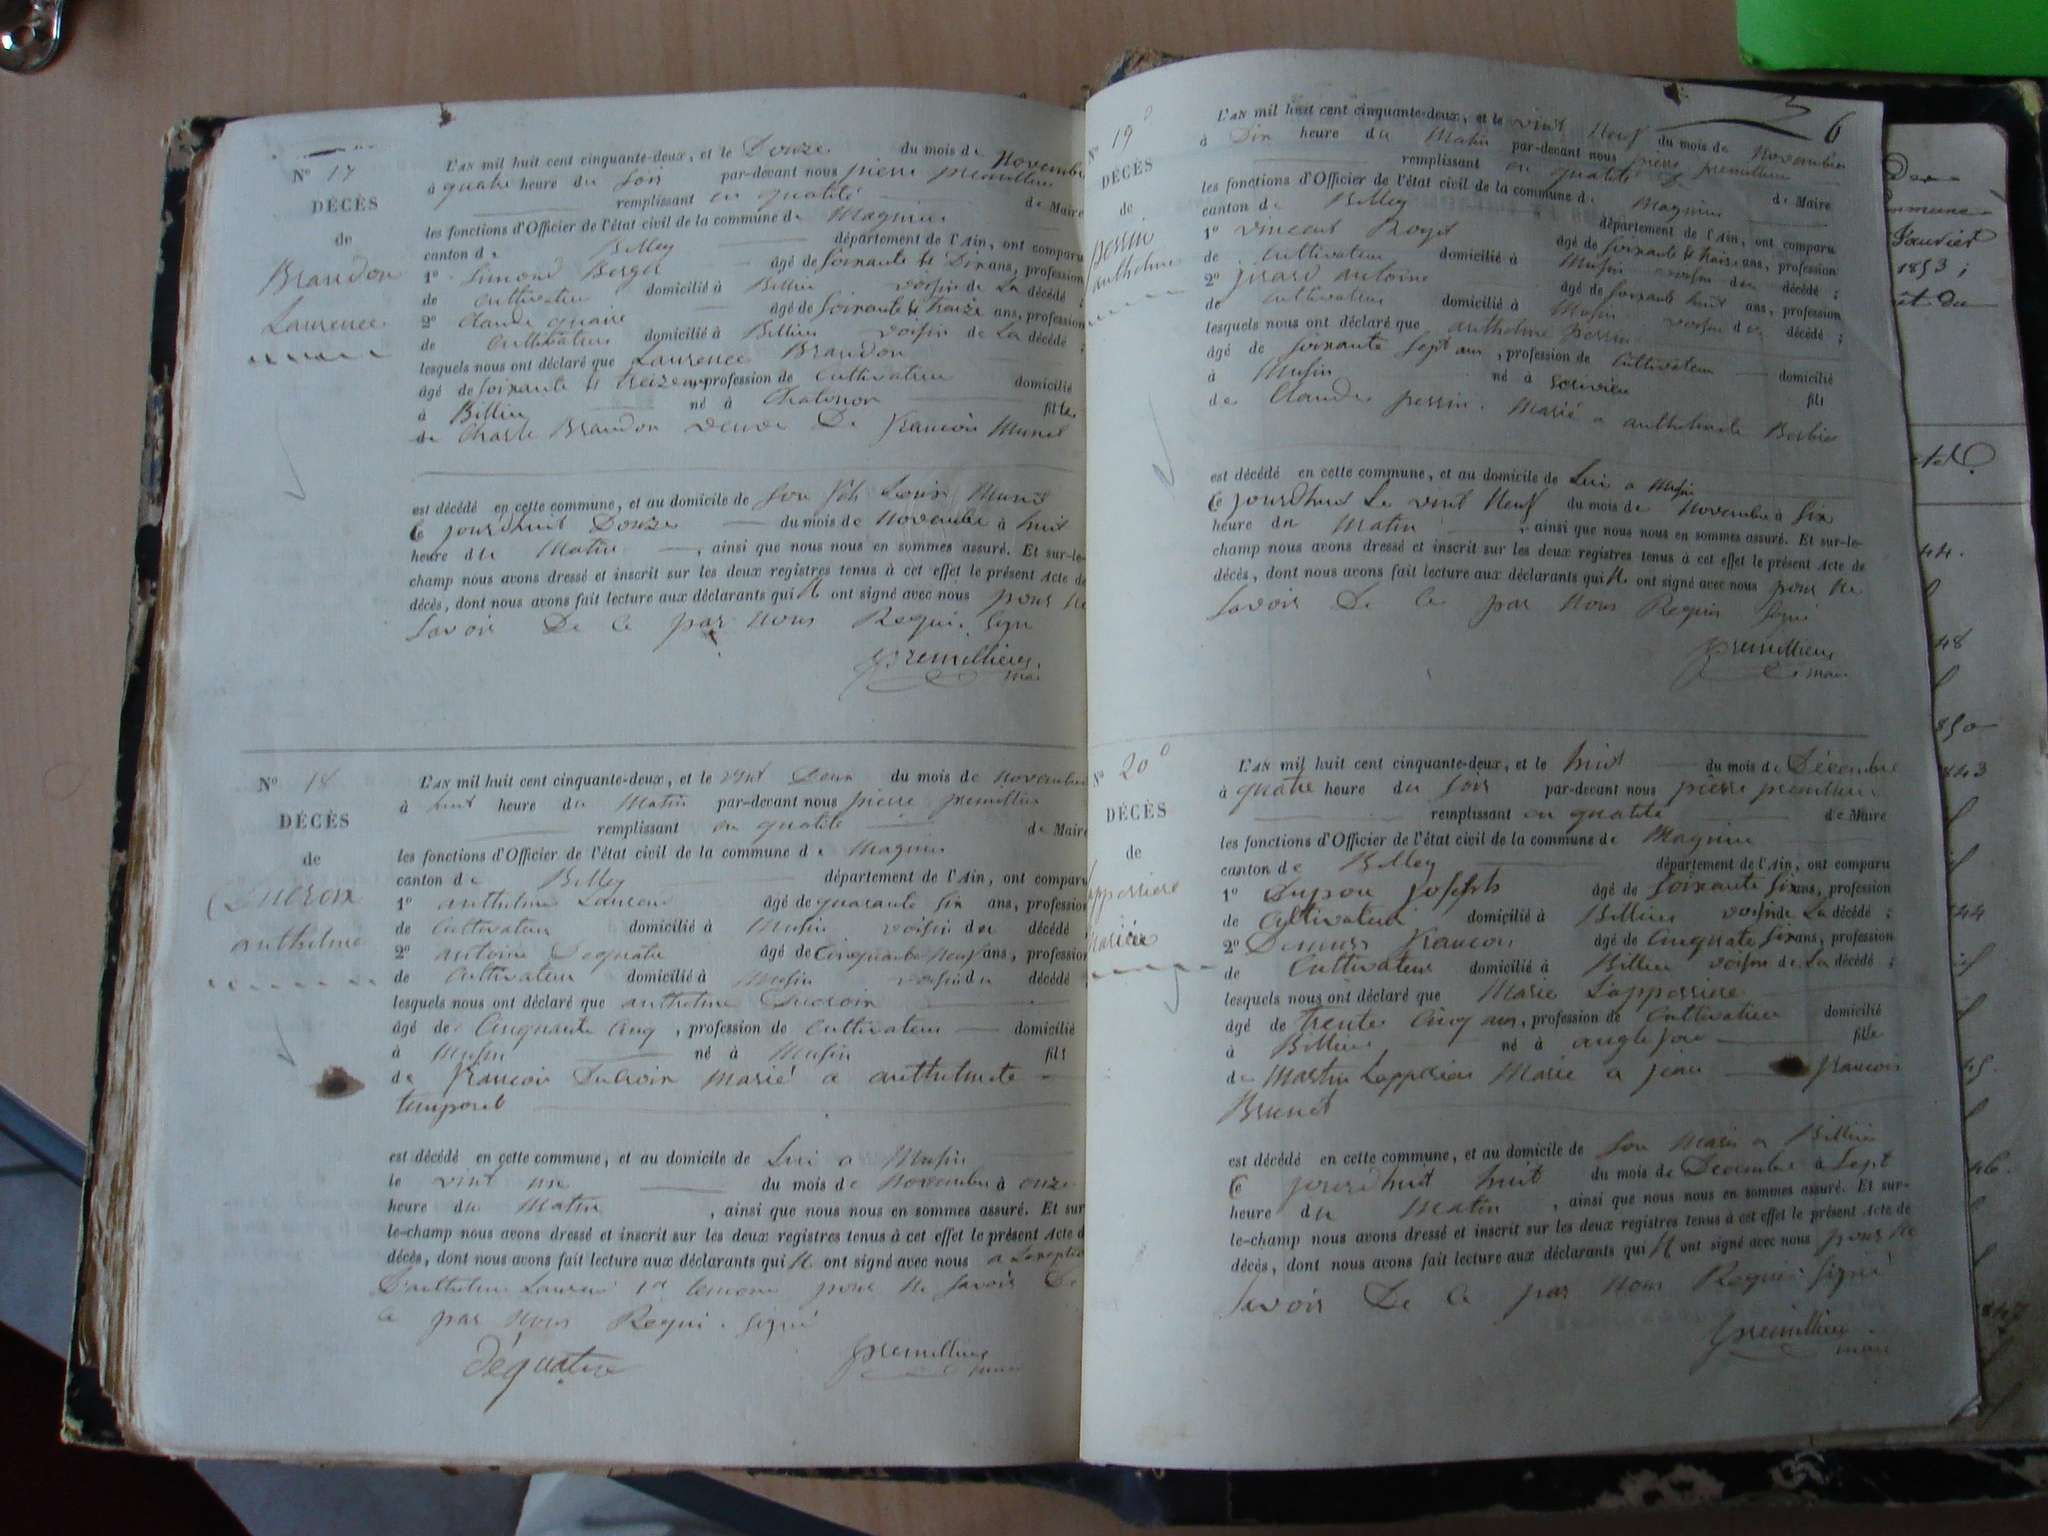 N° 17
DÉCÈS
de
Brandon
Laurence
L'AN mil huit cent cinquante-deux, et le Douze du mois de Novembre
à quatre heure du Soir par-devant nous pierre premillieu
remplissant en qualité de Maire
les fonctions d'Officier de l'état civil de la commune de Magnieu
canton de Belley département de l'Ain, ont comparu
1° Simond Berger âgé de Soixante et Dix ans, profession
de Cultivateur domicilié à Billieu voisin de La décédé ;
2° Claude âgé de Soixante et treize ans, profession
de Cultivateur domicilié à Billieu voisin de La décédé ;
lesquels nous ont déclaré que Laurence Brandon
âgé de Soixante et treize ans, profession de Cultivateur domicilié
à Billieu né à fille
de Charle Brandon veuve De francois Munet
est décédé en cette commune, et au domicile de Son fils Louis Munet
Ce jourdhuit Douze du mois de Novembre à huit
heure du Matin , ainsi que nous nous en sommes assuré. Et sur-le-
champ nous avons dressé et inscrit sur les deux registres tenus à cet effet le présent Acte de
décès, dont nous avons fait lecture aux déclarants qui N. ont signé avec nous pour ne
Savoir De Ce par Nous Requi. Signé
premillieu
maire
N° 18
DÉCÈS
de
Ducroix
anthelme
L'AN mil huit cent cinquante-deux, et le vint Deux du mois de novembre
à huit heure du Matin par-devant nous pierre premillieu
remplissant en qualité de Maire
les fonctions d'Officier de l'état civil de la commune de Magnieu
canton de Belley département de l'Ain, ont comparu
1° anthelme Laurend âgé de quarante Six ans, profession
de Cultivateur domicilié à Musin voisin du décédé
2° antoine Dequatre âgé de Cinquante Neuf ans, profession
de Cultivateur domicilié à Musin voisin du décédé
lesquels nous ont déclaré que anthelme Ducroix
âgé de Cinquante Cinq , profession de Cultivateur domicilié
à Musin né à Musin fils
de francois Ducroix marié a anthelmete
temporel
est décédé en cette commune, et au domicile de Lui a Musin
le vint un du mois de Novembre à onze
heure du Matin , ainsi que nous nous en sommes assuré. Et sur
le-champ nous avons dressé et inscrit sur les deux registres tenus à cet effet le présent Acte d
décès, dont nous avons fait lecture aux déclarants qui N. ont signé avec nous a Lexeptio
D'anthelme Laurend 1er temoin pour ne Savoir De
Ce par Nous Requi. Signé
Déquatre
premillieu
maire
6
N° 19
DÉCÈS
de
perrin
anthelme
L'AN mil huit cent cinquante-deux, et le vint Neuf du mois de Novembre
à Dix heure du Matin par-devant nous pierre premillieu
remplissant en qualité de Maire
les fonctions d'Officier de l'état civil de la commune de Magnieu
canton de Belley département de l'Ain, ont comparu
1° vincent Roget âgé de Soixante et treize ans, profession
de Cultivateur domicilié à Musin voisin du décédé ;
2° antoine âgé de Soixante huit ans, profession
de Cultivateur domicilié à Musin voisin du décédé ;
lesquels nous ont déclaré que anthelme perrin
âgé de Soixante Sept ans , profession de Cultivateur domicilié
à Musin né à fils
de Claude perrin. Marié a anthelmete
est décédé en cette commune, et au domicile de Lui a Musin
Ce jourdhuit Le vint Neuf du mois de Novembre à Six
heure du Matin , ainsi que nous nous en sommes assuré. Et sur-le-
champ nous avons dressé et inscrit sur les deux registres tenus à cet effet le présent Acte de
décès, dont nous avons fait lecture aux déclarants qui N. ont signé avec nous pour ne
Savoir De Ce par Nous Requis Signé
premillieu
maire
N° 20
DÉCÈS
de
apperriere
marie
L'AN mil huit cent cinquante-deux, et le huit du mois de Décembre
à quatre heure du Soir par-devant nous pierre premillieu
remplissant en qualité de Maire
les fonctions d'Officier de l'état civil de la commune de Magnieu
canton de Belley département de l'Ain, ont comparu
1° Dupou joseph âgé de Soixante Six ans, profession
de Cultivateur domicilié à Billieu voisin de La décédé ;
2° francois âgé de Cinquate Six ans, profession
de Cultivateur domicilié à Billieu voisin de La décédé ;
lesquels nous ont déclaré que Marie Lapperriere
âgé de trente Cinq ans, profession de Cultivateur domicilié
à Billieu né à anglefort fille
de Martin Marie a jean francois
Brunet
est décédé en cette commune, et au domicile de Son Mari a Billieu
Ce jourdhuit huit du mois de Decembre à Sept
heure du Matin , ainsi que nous nous en sommes assuré. Et sur-
le-champ nous avons dressé et inscrit sur les deux registres tenus à cet effet le présent Acte de
décès, dont nous avons fait lecture aux déclarants qui N. ont signé avec nous pour ne
Savoir De Ce par Nous Requi. Signé
premillieu
maire
1853 ;
44.
48
850
843
44
45.
46.
847